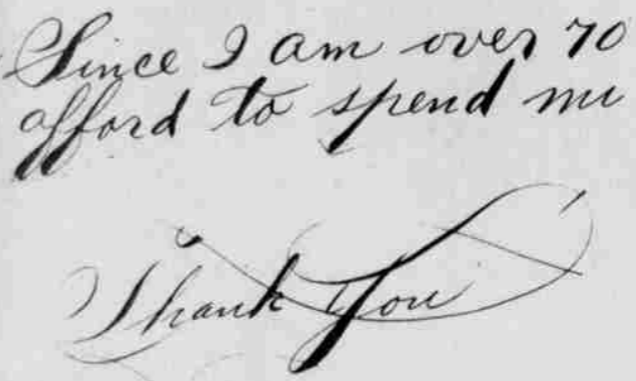 Since I am over 70
afford to spend mu
Thank You